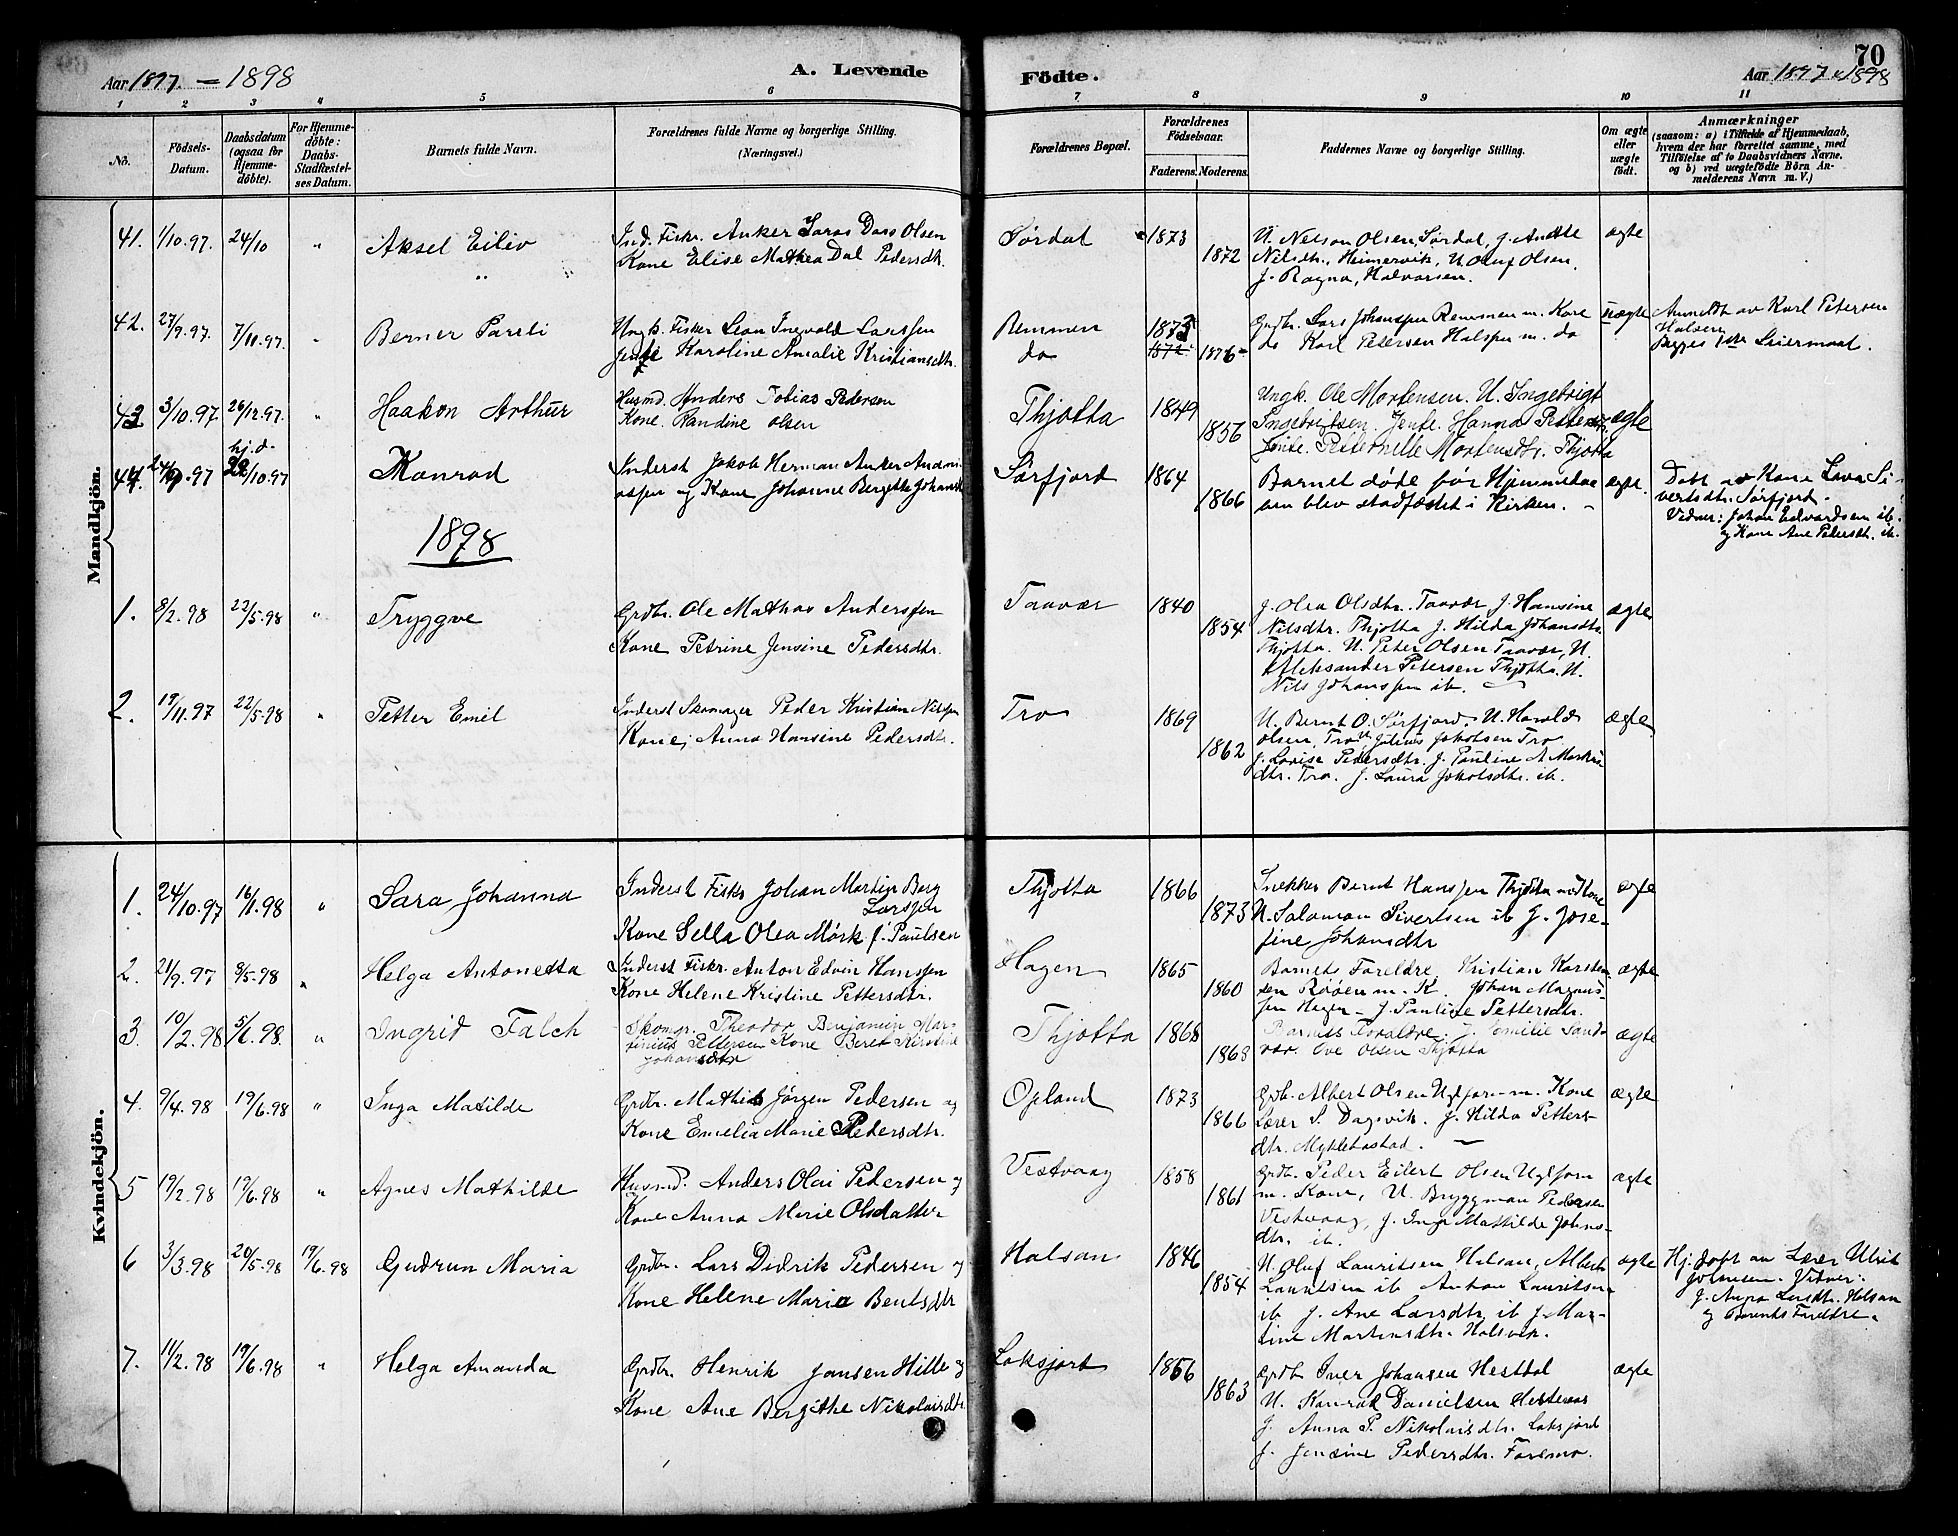 Aar 1897 = 1898
A. Levende
Födte.
70
Aar 1897 & 1898
1 2 3 4 5 6 7 8 9 10 11
No.
Födsels-
Datum.
Daabsdatum
(ogsaa for
Hjemme-
döbte).
For Hjemme-
döbte:
Daabs-
Stadfæstel-
ses Datum.
Barnets fulde Navn.
Forældrenes fulde Navne og borgerlige Stilling.
(Næringsvei.)
Forældrenes Bopæl.
Forældrenes
Födselsaar.
Faderens. Moderens.
Faddernes Navne og borgerlige Stilling.
Om ægte
eller
uægte
födt.
Anmærkninger
(saasom: a) i Tilfælde af Hjemmedaab,
hvem der har forrettet samme, med
Tilföielse af to Daabsvidners Navne,
og b) ved uægtefödte Börn An-
melderens Navn m. V.)
Mandkjön.
41. 1/10.97. 24/10 " Aksel Eiliv
Ind. Fiskr. Anker Olsen
Kone Elise Mathea Dal Pedersdtr.
Sørdal 1873 1872
U. Nelson Olsen, Sørdal, J.
Nilsdtr., Heimervik, U. Oluf Olsen,
J. Ragna Halvorsen.
ægte
42. 27/9.97. 7/11.97. " Berner
Ungk. Fisker Leon Ingvald Larssen
Jente Karoline Amalie Kristiansdtr.
Remmen
do
1873 1872 1876
Grdbr. Lars Johanssen Remmen m. Kone
do Karl Petersen Halssen m. do
uægte
Anmeldt av Karl Petersen
Halsen
Begges 1ste Leiermaal.
43 3/10.97. 26/12.97. " Haakon Arthur
Husmd. Anders Tobias Pedersen
Kone Randine Olsen
Thjøtta 1849 1856
Ungk. Ole Mortensen. U. Ingebrigt
Ingebritsen. Jente. Hanna
Jente. Petternelle Mortensdtr. Thjøtta
ægte
44. 97 hj.d. 22/10.97 Konrad
Inderst Jakob Herman Anker
og Kone Johanne Bergitte
Sørfjord 1864 1866
Barnet døde før Hjemmedaa
ben blev stadfæstet i Kirken. -
ægte.
Døbt av Kone Lava Si
vertsdtr. Sørfjord.
Vidner: Johan Edvardsen ib.
og Kone Ane Pedersdtr. ib.
1898
1. 8/2.98 22/5.98 " Tryggve
Grdbr. Ole Mathias Anderssen
Kone Petrine Jensine Pedersdtr.
Taavær 1840 1854
J. Olea Olsdtr. Taavær J. Hansine
Nilsdtr. Thjøtta J. Hilda Johansdtr.
Thjøtta. U. Peter Olsen Taavær, U.
Aleksander Petersen Thjøtta. U.
Nils Johanssen ib.
ægte
2. 19/11.97 22/5.98 " Petter Emil
Inderst Skomager Peder Kristian Nilssen
Kone, Anna Hansine Pedersdtr.
Tro 1869 1862
U. Bernt O. Sørfjord. U. Harald
Olsen, Tro, U. Julius Jakobsen Tro
J. Lovise Pedersdtr. J. Pauline A.
dtr. Tro. J. Laura Jakobsdtr. ib.
ægte
Kvindekjön.
1. 24/10.97 16/1.98 " Sara Johanna
Inderst Fiskr Johan Martin Berg
Larssen
Kone Sella Olea Mørk f. Paulsen
Thjøtta 1866 1873
Snekker Bernt Hanssen Thjøtta med Kone
U. Salamon Sivertsen ib J. Jose-
fine Johansdtr
ægte
2. 21/9.97 8/5.98 " Helga Antonetta
Inderst Fiskr. Anton Edvin Hanssen
Kone Helene Kristine Pettersdtr.
Hagen 1865 1860
Barnets Foreldre, Kristian Karsten-
sen Røøen m. K. Johan Magnus-
sen Hagen - J. Pauline Pettersdtr.
ægte
3. 10/2.98 5/6.98. " Ingrid Falch
Skomgr. Theodor Benjamin Mar-
tinius Pettersen Kone Beret Kirstine
Johansdtr
Thjøtta 1868 1868
Barnets Foreldre. J. Emilie Sand-
vær. Ove Olsen Thjøtta
ægte
4. 9/4.98 19/6.98 " Inga Matilde
Grdbr. Mathias Jørgen Pedersen og
Kone Emelia Marie Pedersdtr.
Opland 1873 1866
Grdb. Albert Olsen m. Kone
Lærer S. Dagsvik. J. Hilda Petters-
dtr. Mykletustad.
ægte
5 19/2.98 19/6.98 " Agnes Mathilde
Husmd. Anders Olai Pedersen og
Kone Anna Marie Olsdatter
Vestvaag 1858 1861
Grdb. Peder Eilert Olsen
m. Kone, U. Bryggman Pedersen
Vestvaag, J. Inga Mathilde Johns-
dtr. ib.
ægte
6 3/3.98 20/5.98 19/6.98 Gudrun Maria
Grdbr. Lars Didrik Pedersen og
Kone Helene Maria Bentsdtr
Halsan 1846 1854
U. Oluf Lauritsen Halsan, Albert
Lauritsen ib Anton Lauritsen
ib J. Ane Larsdtr, ib J. Mar-
tine Martinsdtr. Halsvik.
ægte
Hj. døpt av Lærer Ulrik
Johnsen. Vidner:
J. Anna Larsdtr. Halsan
og Barnets Foreldre.
7. 11/2.98 19/6.98 " Helga Amanda
Grdbr. Henrik Jansen Hille og
Kone Ane Bergithe Nikolaisdtr.
Loksjord 1866 1863
Grdb Iver Johansen Hestdal
U. Konrad Danielsen
J. Anna P. Nikolaisdtr. Loksjord
J. Jensine Pedersdtr. Forsmo.
ægte